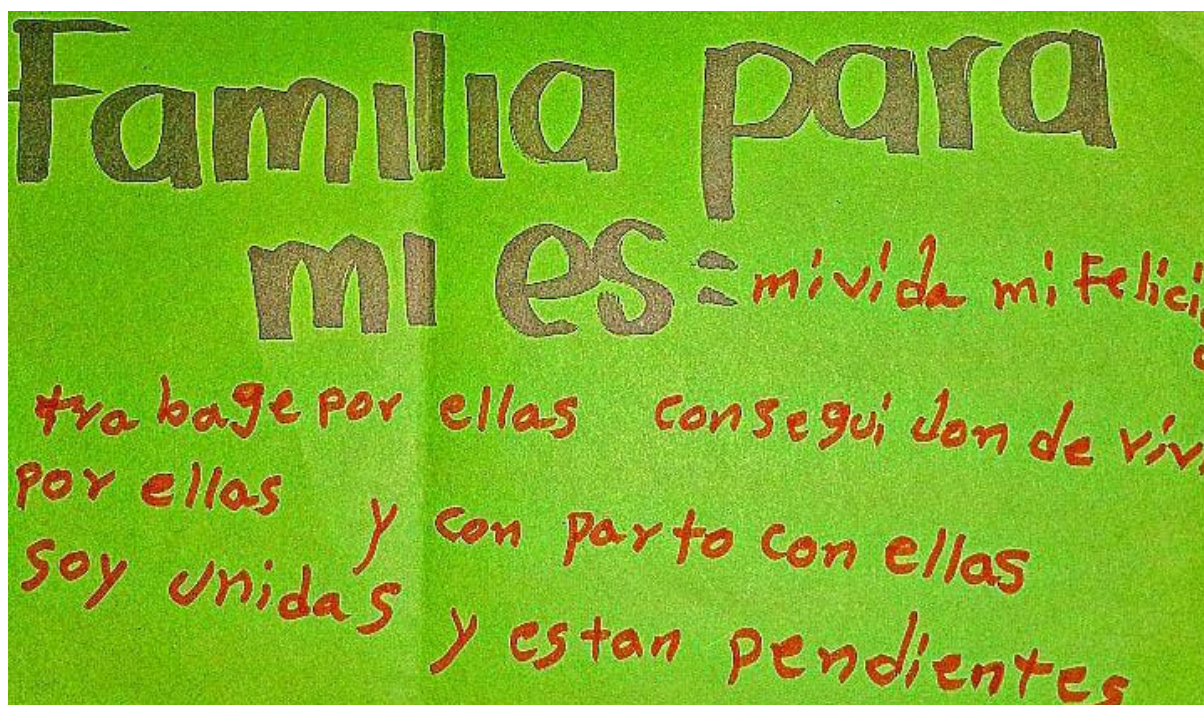 Familia para
mi es= mi vida mi Felici
trabage por ellas conseguidon de viv
por ellas y con parto con ellas
soy unidas y estan pendientes